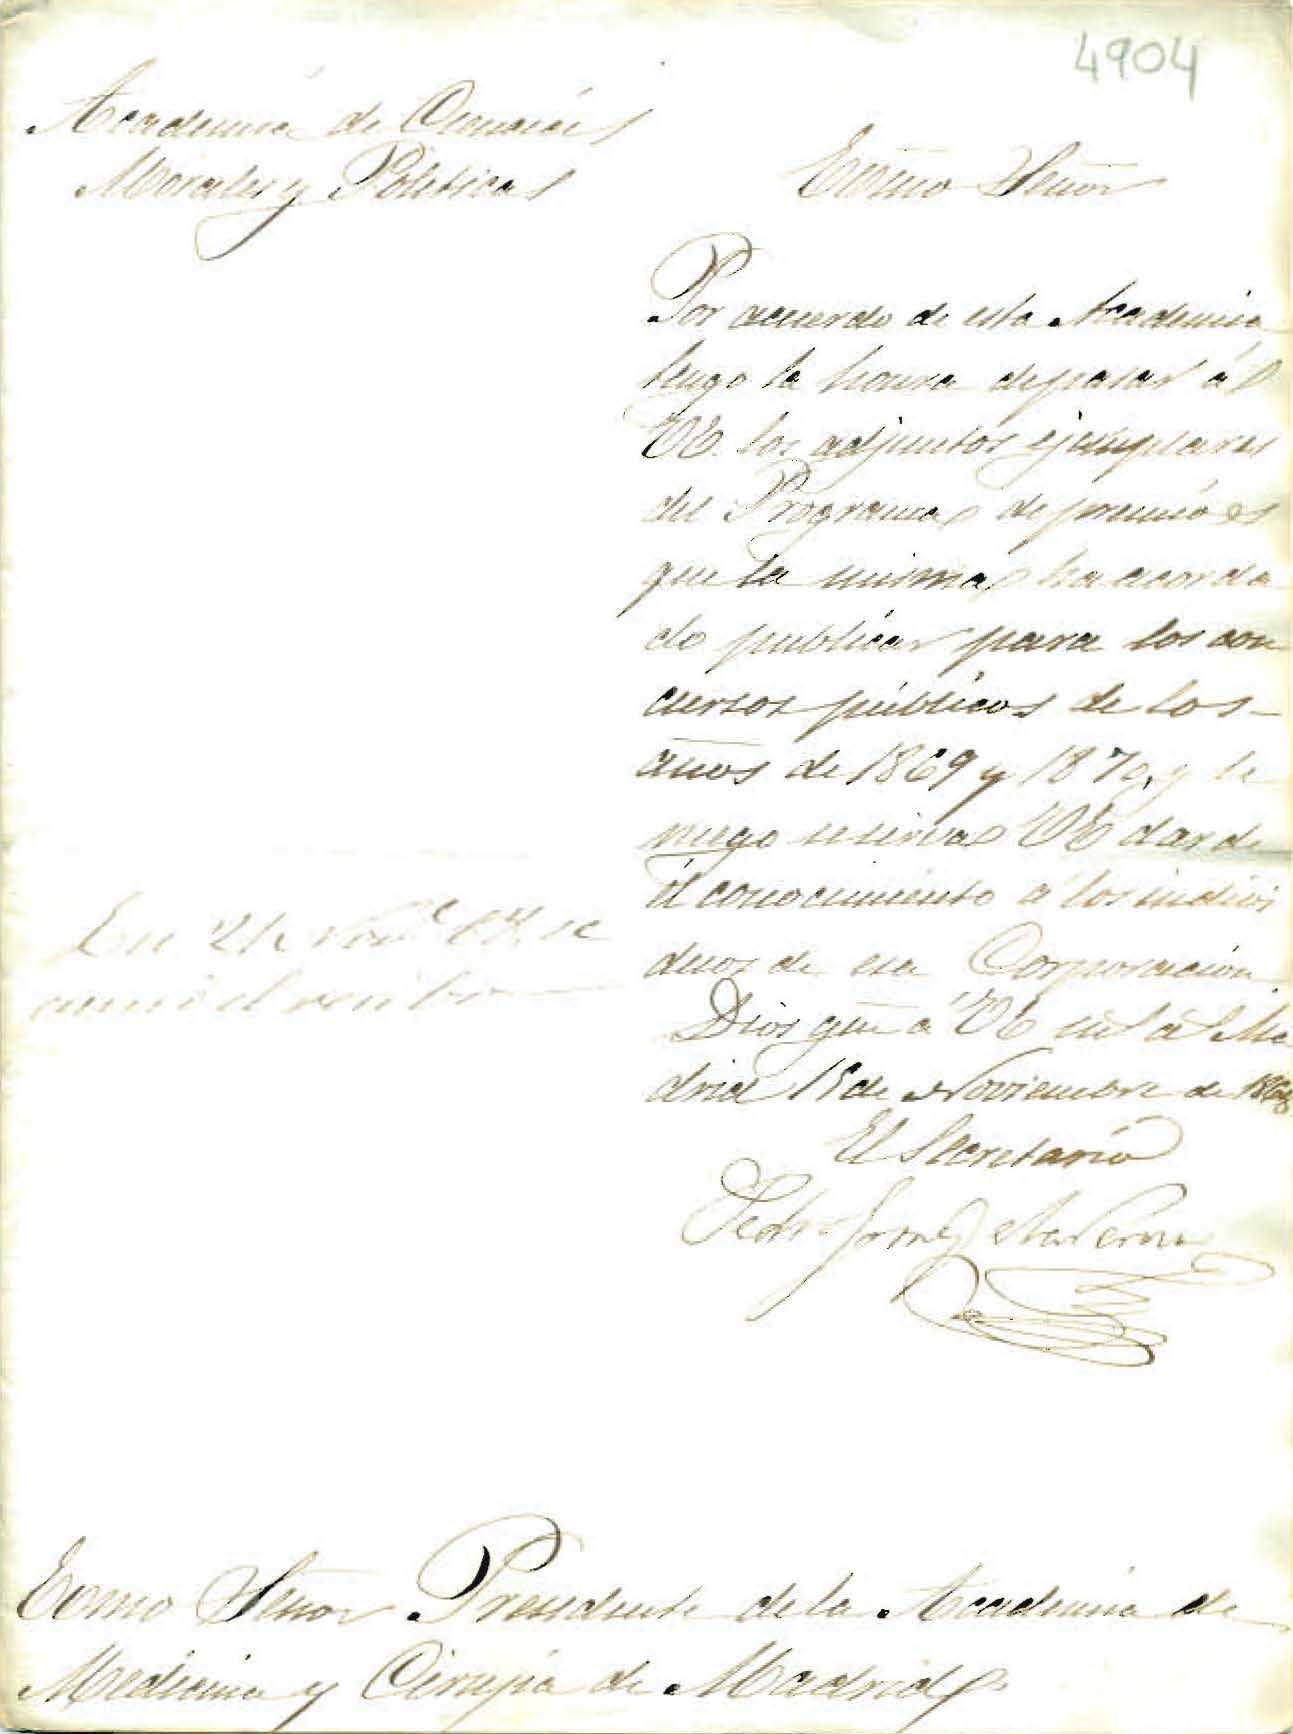 4904
Academia de Ciencias
Morales y Politicas
Exmo Señor
Por acuerdo de esta Academia
tengo la honra de pasar á
VE. los adjuntos ejemplares
del Programa de premios
que la misma ha acorda
do publicar para los con
cursos públicos de los
años de 1869 y 1870, y le
ruego se sirva VE dar de
él conocimiento á los indivi
duos de esa Corporacion
Dios gue á VE Ma
drid 18 de Noviembre de 186
El Secretario
Pedro
En 21 Nov.e se
el recibo
Exmo Señor Presidente de la Academia de
Medicina y Cirugía de Madrid